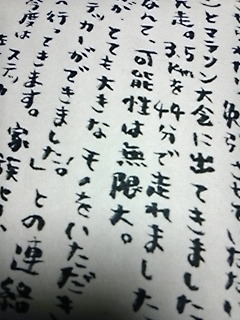 せていただい
とマラソン大会に出てきました
走。3.5kmを44分で走れました
なんて、可能性は無限大。
が、とても大きなモノをいただき
ッカーができました!
行ってきます。」との連絡
今度は 家族
ステッ